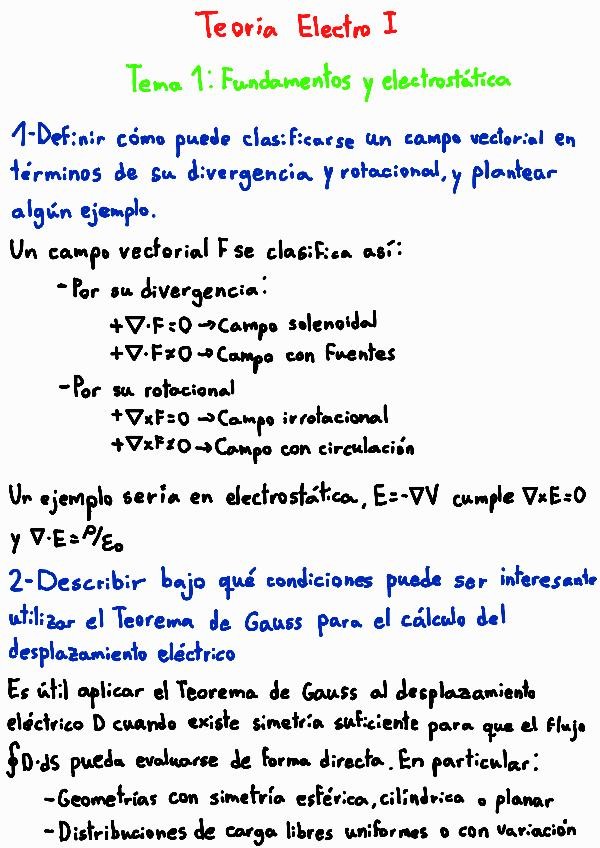 Teoría Electro I
Tema 1: Fundamentos y electrostática
1-Definir cómo puede clasificarse un campo vectorial en
términos de su divergencia y rotacional, y plantear
algún ejemplo.
Un campo vectorial F se clasifica así:
-Por su divergencia:
+∇·F=0→Campo solenoidal
+∇·F≠0→Campo con fuentes
-Por su rotacional
+∇×F=0→Campo irrotacional
+∇×F≠0→Campo con circulación
Un ejemplo sería en electrostática, E=-∇V cumple ∇×E=0
y ∇·E=ρ/ε₀
2-Describir bajo qué condiciones puede ser interesante
utilizar el Teorema de Gauss para el cálculo del
desplazamiento eléctrico
Es útil aplicar el Teorema de Gauss al desplazamiento
eléctrico D cuando existe simetría suficiente para que el flujo
∮D·dS pueda evaluarse de forma directa. En particular:
-Geometrías con simetría esférica, cilíndrica o planar
-Distribuciones de carga libres uniformes o con variación